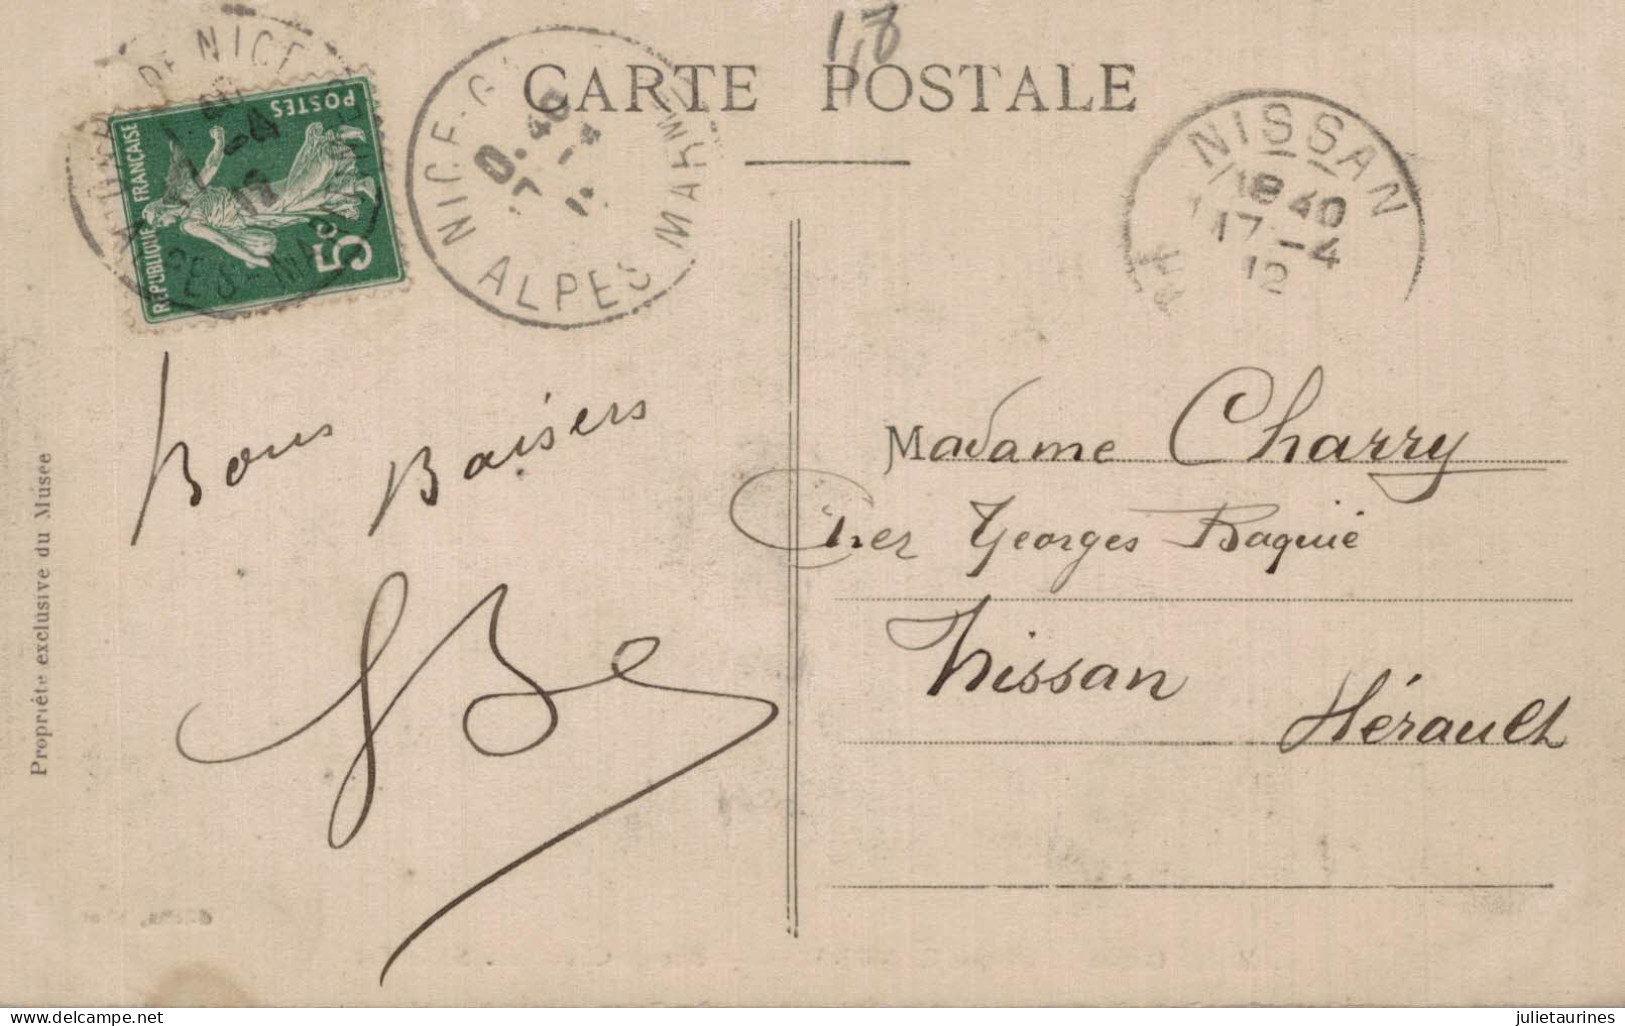 1,8
CARTE POSTALE
DE NICE
ALPES-MAR
POSTES
REPUBLIQUE FRANÇAISE
5c
-4
12
NICE
ALPES MAR
NISSAN
18 40
17-4
12
Bons Baisers
Madame Charry
Chez Georges Baquié
Nissan
Hérault
Propriéte exclusive du Musee
delcampe.net
julietaurines